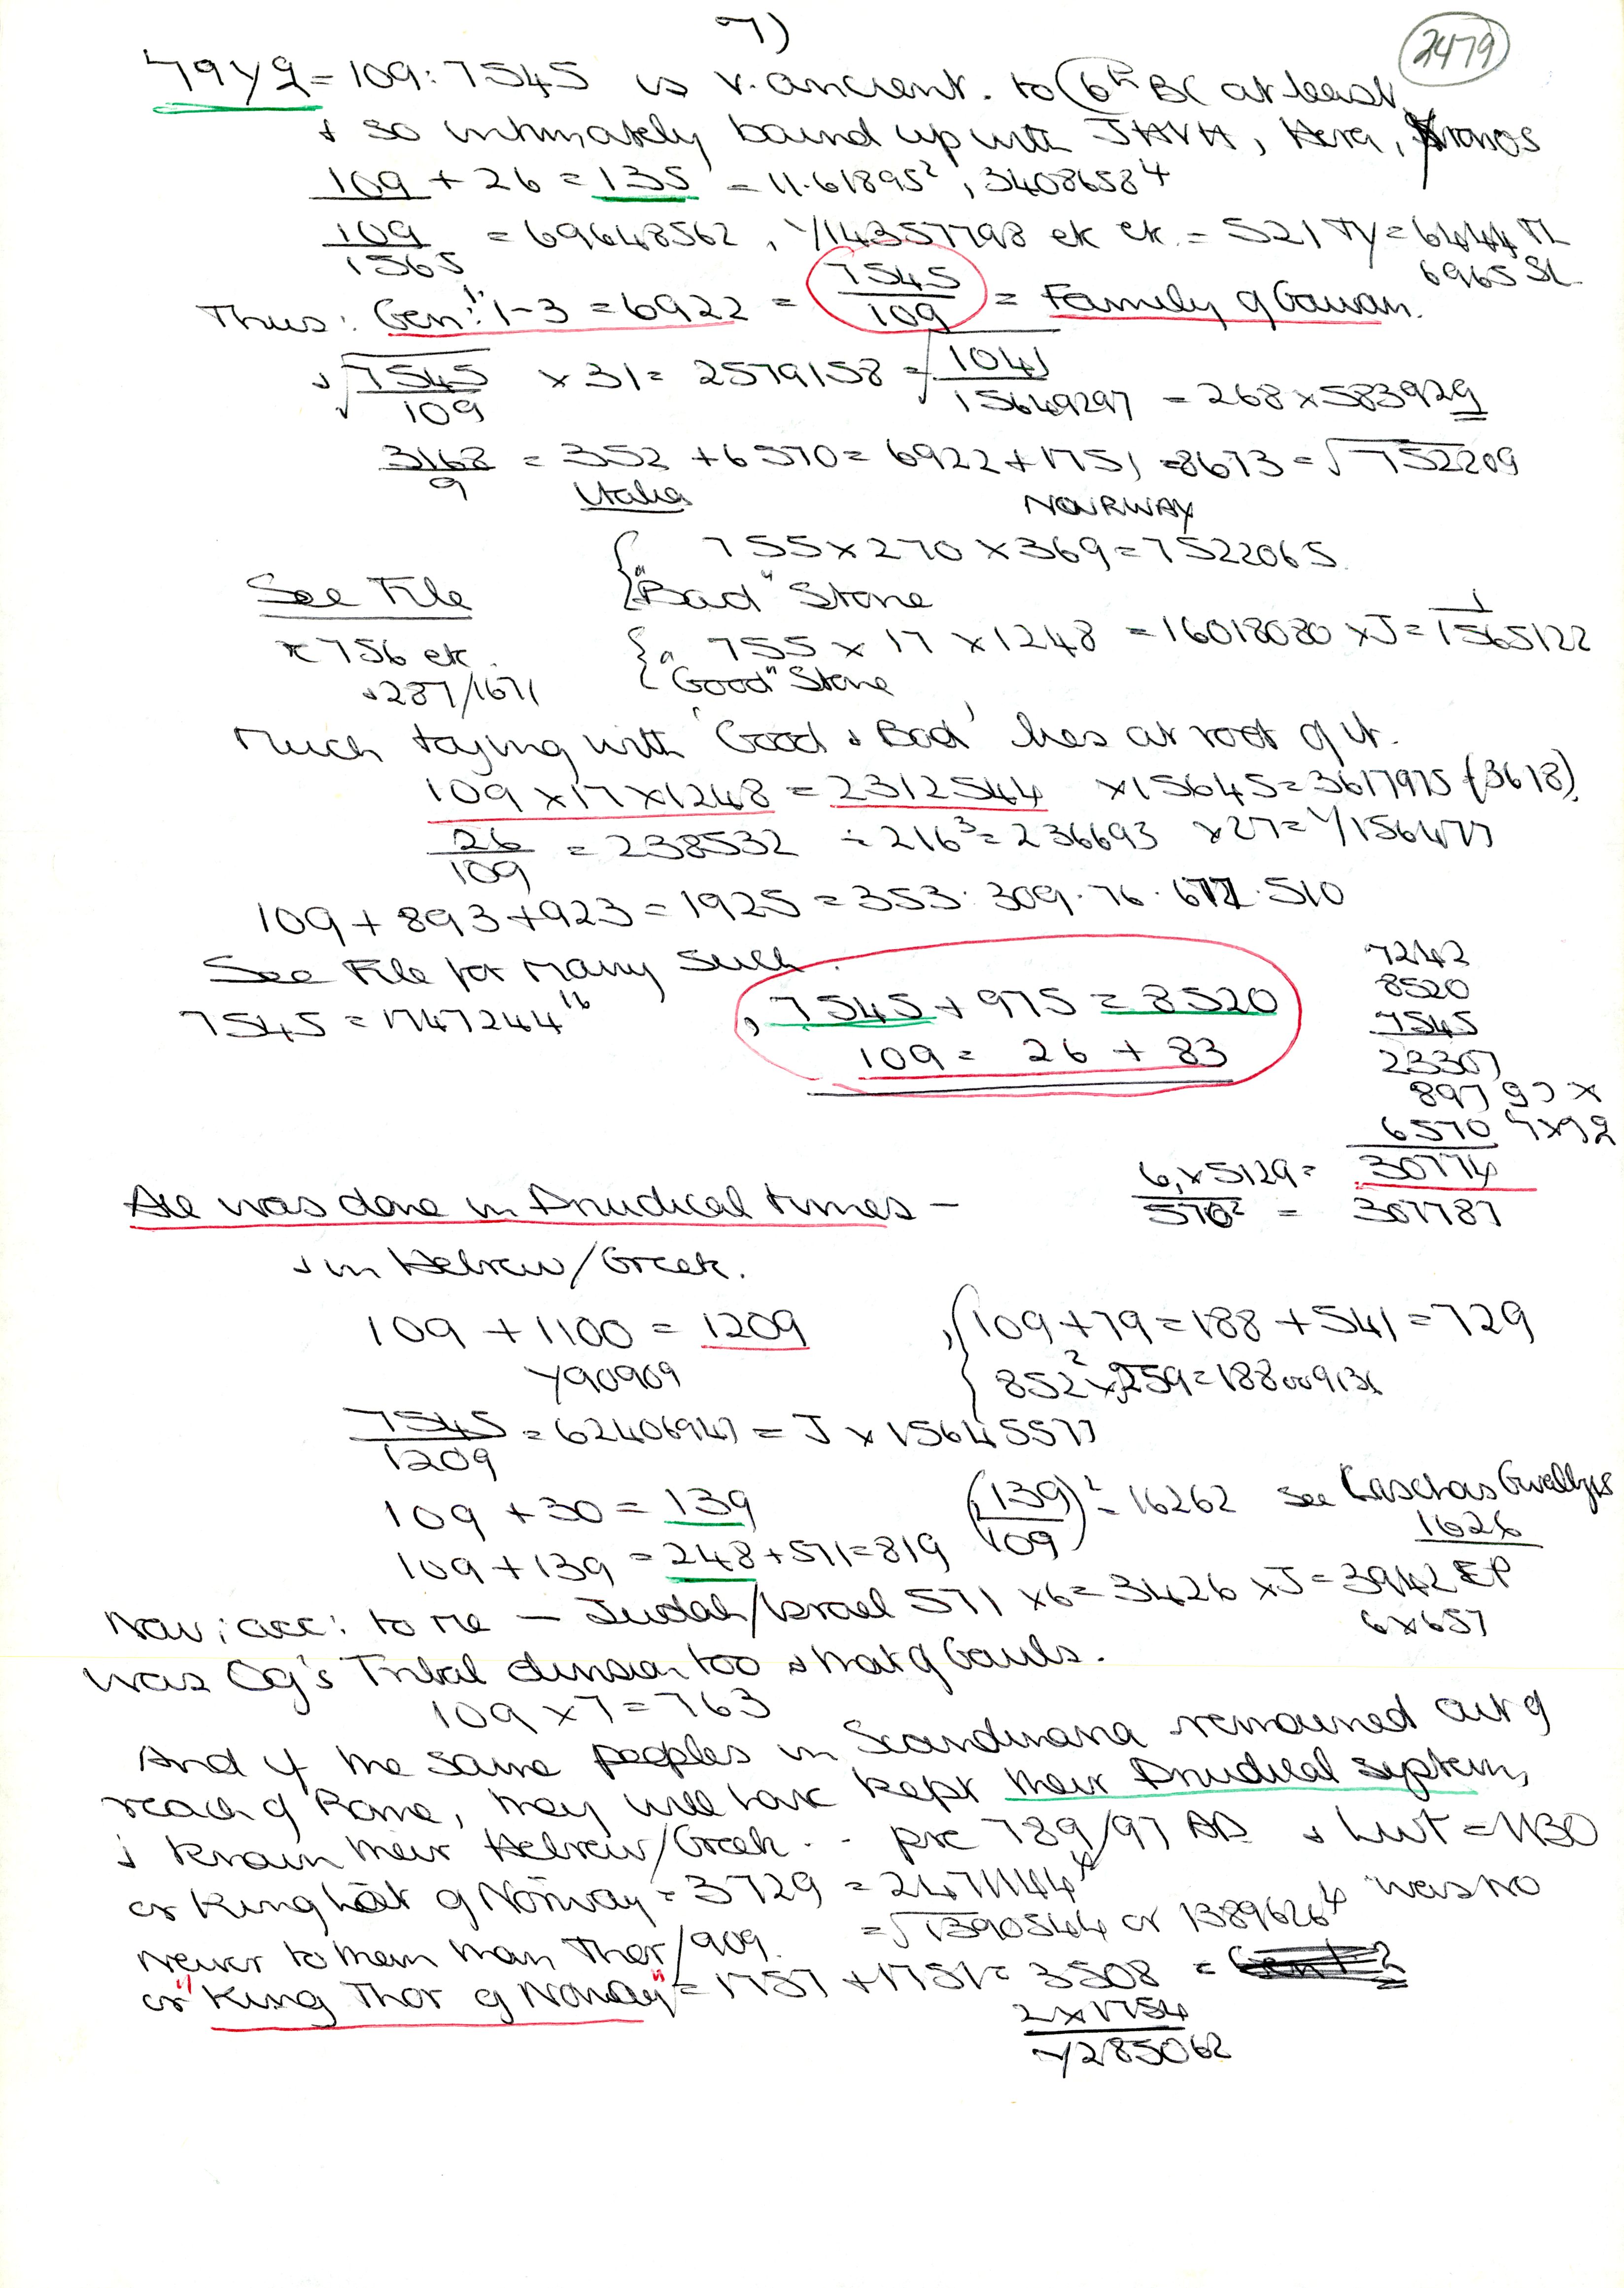 7)
2479
79y9 = 109: 7545 is v. ancient. to 6th BC at least
& so intimately bound up with JHVH, Hera, Kronos
109 + 26 = 135 = 11.61895², 3408658⁴
109/1565 = 69648562, Y14357798 etc etc. = 521 TY = 6444 TL
6965 SL
Thus: Gen: 1. 1-3 = 6922 = 7545/109 = Family of Gawain.
& √7545/109 × 31 = 2579158 = √1041/15649297 = 268 × 583929
3168/9 = 352 + 6570 = 6922 + 1751 = 8673 = √752209
Italia
NORWAY
755 × 270 × 369 = 7522065
"Bad" Stone
See File
r 756 etc.
& 287/1671
755 × 17 × 1248 = 16018080 × J = 1/1565122
"Good" Stone
Much toying with 'Good & Bad' lies at root of it.
109 × 17 × 1248 = 2312544 × 15645 = 3617975 (3618)
26/109 = 238532 ÷ 216³ = 236693 × 27 = Y156477
109 + 893 + 923 = 1925 = 353. 309. 76. 677. 510
See File for Many Such.
7545 = 1747244¹⁶
, 7545 + 975 = 8520
109 = 26 + 83
7242
8520
7545
23307
897
6570
6 × 5129 = 30774
570² = 307787
All was done in Druidical times –
& in Hebrew/Greek.
109 + 1100 = 1209
Y90909
109 + 79 = 188 + 541 = 729
852² × 259 = 188009136
7545/1209 = 62406947 = J × 15645577
109 + 30 = 139
(139/109)² = 16262 see
1626
109 + 139 = 248 + 571 = 819
Now; acc: to me – Judah/Israel 571 × 6 = 3426 × J = 3942 EP
6 × 657
was Og's Tribal division too & that of Gauls.
109 × 7 = 763
And if the same peoples in Scandinavia remained out of
reach of Rome, they will have kept their Druidical system,
& known their Hebrew/Greek .. pre 789/97 AD. & LWT = 1130
or King Löt of Norway = 3729 = 2471144⁴
= √1390544 or 1389626⁴ was no
newer to them than Thor/909.
or "King Thor of Norway" = 1757 + 1751 = 3508 =
2 × 1754
Y285062